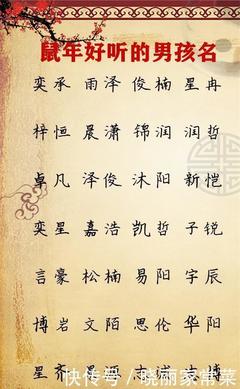 鼠年好听的男孩名
奕承 雨泽 俊楠 星冉
梓恒 晨潇 锦润 润哲
卓凡 泽俊 沐阳 新恺
奕星 嘉浩 凯哲 子锐
言豪 松楠 易阳 宇辰
博岩 文陌 思伦 华阳
星齐
快传号/晓丽家常菜